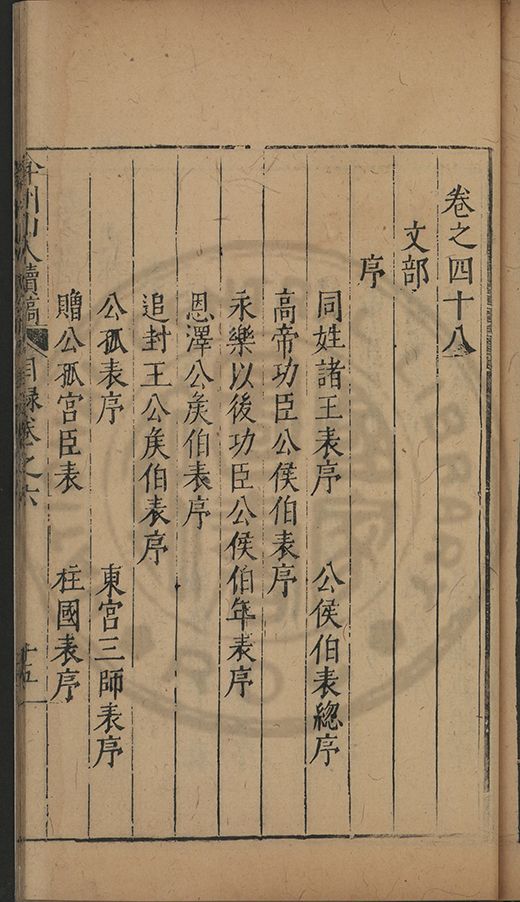 卷之四十八
文部
序
同姓諸王表序　公侯伯表總序
高帝功臣公侯伯表序
永樂以後功臣公侯伯年表序
恩澤公矦伯表序
追封王公矦伯表序
公孤表序　東宫三師表序
贈公孤宫臣表　柱國表序
弇州山人續稿 目録卷之六 十五